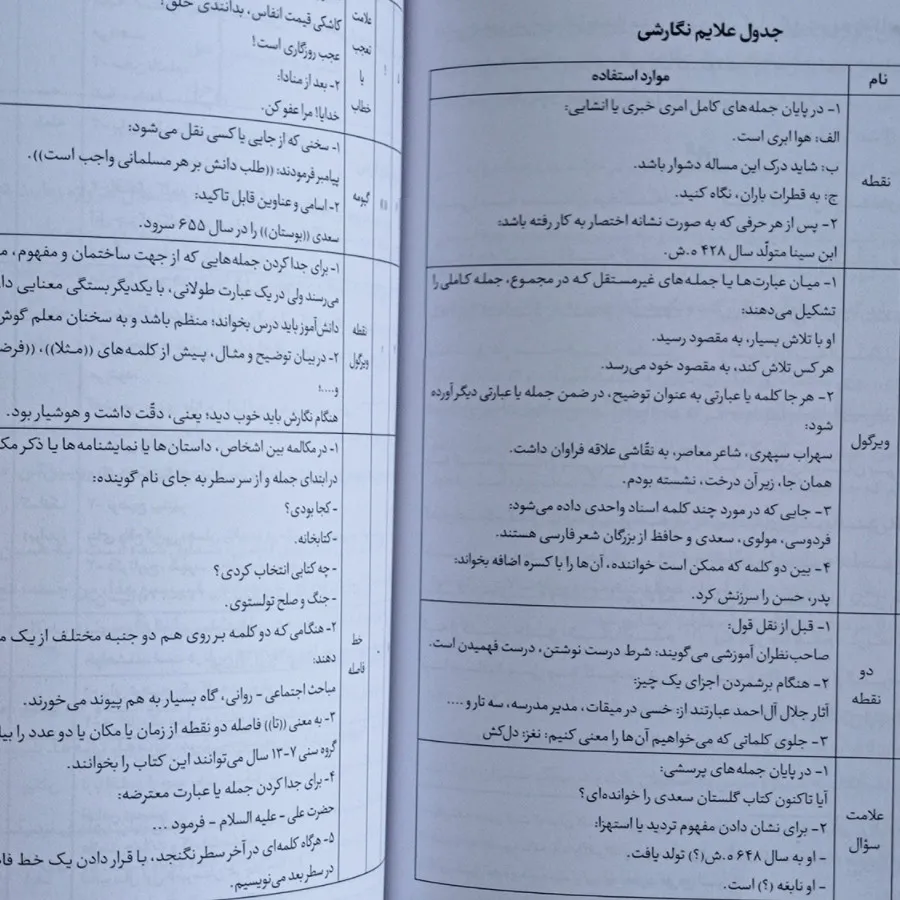 جدول علایم نگارشی
نام
موارد استفاده
نقطه
۱- در پایان جمله‌های کامل امری خبری یا انشایی:
الف: هوا ابری است.
ب: شاید درک این مساله دشوار باشد.
ج: به قطرات باران، نگاه کنید.
۲- پس از هر حرفی که به صورت نشانه اختصار به کار رفته باشد:
ابن سینا متولّد سال ۴۲۸ ه.ش.
ویرگول
۱- میان عبارت‌ها یا جمله‌های غیرمستقل که در مجموع، جمله کاملی را
تشکیل می‌دهند:
او با تلاش بسیار، به مقصود رسید.
هر کس تلاش کند، به مقصود خود می‌رسد.
۲- هر جا کلمه یا عبارتی به عنوان توضیح، در ضمن جمله یا عبارتی دیگر آورده
شود:
سهراب سپهری، شاعر معاصر، به نقّاشی علاقه فراوان داشت.
همان جا، زیر آن درخت، نشسته بودم.
۳- جایی که در مورد چند کلمه اسناد واحدی داده می‌شود:
فردوسی، مولوی، سعدی و حافظ از بزرگان شعر فارسی هستند.
۴- بین دو کلمه که ممکن است خواننده، آن‌ها را با کسره اضافه بخواند:
پدر، حسن را سرزنش کرد.
دو
نقطه
۱- قبل از نقل قول:
صاحب‌نظران آموزشی می‌گویند: شرط درست نوشتن، درست فهمیدن است.
۲- هنگام برشمردن اجزای یک چیز:
آثار جلال آل‌احمد عبارتند از: خسی در میقات، مدیر مدرسه، سه تار و ....
۳- جلوی کلماتی که می‌خواهیم آن‌ها را معنی کنیم: نغز: دل‌کش
علامت
سؤال
۱- در پایان جمله‌های پرسشی:
آیا تاکنون کتاب گلستان سعدی را خوانده‌ای؟
۲- برای نشان دادن مفهوم تردید یا استهزا:
- او به سال ۶۴۸ ه.ش(؟) تولد یافت.
- او نابغه (؟) است.
علامت
تعجب
یا
خطاب
!
کاشکی قیمت انفاس، بدانندی خلق!
عجب روزگاری است!
۲- بعد از منادا:
خدایا! مرا عفو کن.
گیومه
(( ))
۱- سخنی که از جایی یا کسی نقل می‌شود:
پیامبر فرمودند: ((طلب دانش بر هر مسلمانی واجب است)).
۲- اسامی و عناوین قابل تاکید:
سعدی ((بوستان)) را در سال ۶۵۵ سرود.
نقطه
ویرگول
۱- برای جدا کردن جمله‌هایی که از جهت ساختمان و مفهوم،
می‌رسند ولی در یک عبارت طولانی، با یکدیگر بستگی معنایی
دانش‌آموز باید درس بخواند؛ منظم باشد و به سخنان معلم گوش
۲- در بیان توضیح و مثال، پیش از کلمه‌های ((مثلا))،
و....؛
هنگام نگارش باید خوب دید؛ یعنی، دقّت داشت و هوشیار بود.
خط
فاصله
۱- در مکالمه بین اشخاص، داستان‌ها یا نمایشنامه‌ها یا ذکر
در ابتدای جمله و از سر سطر به جای نام گوینده:
- کجا بودی؟
- کتابخانه.
- چه کتابی انتخاب کردی؟
- جنگ و صلح تولستوی.
۲- هنگامی که دو کلمه بر روی هم دو جنبه مختلف از یک
دهند:
مباحث اجتماعی - روانی، گاه بسیار به هم پیوند می‌خورند.
۳- به معنی ((تا)) فاصله دو نقطه از زمان یا مکان یا دو عدد را
گروه سنی ۷-۱۳ سال می‌توانند این کتاب را بخوانند.
۴- برای جدا کردن جمله یا عبارت معترضه:
حضرت علی - علیه السلام - فرمود ...
۵- هرگاه کلمه‌ای در آخر سطر نگنجد، با قرار دادن یک خط
در سطر بعد می‌نویسیم.